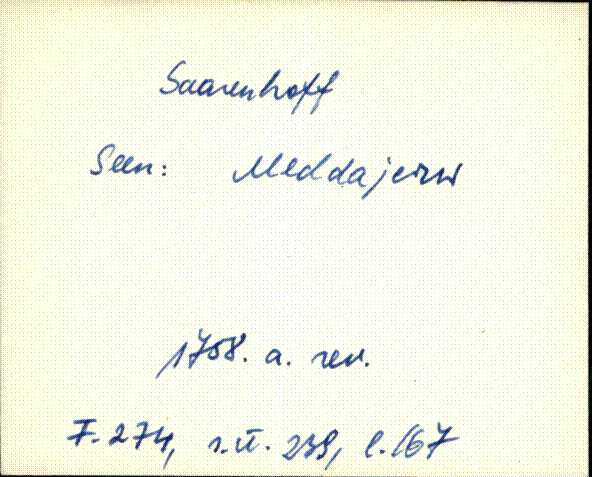 Saarenhoff
Seen: Meddajerw
1758. a. rev.
F. 274, s.ü. 239, l. 167